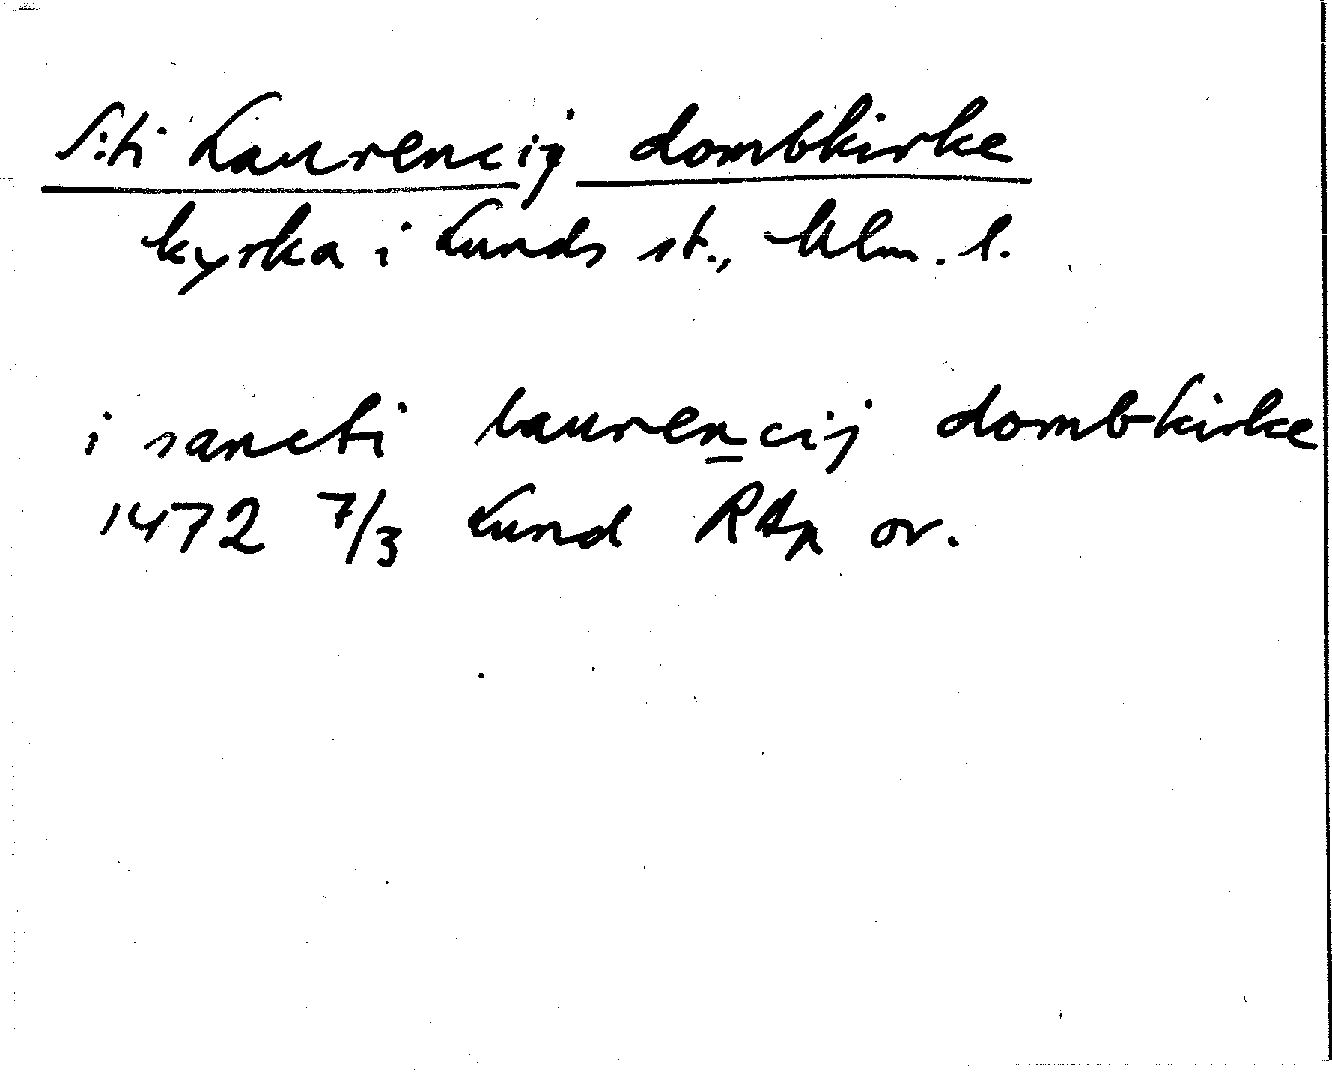 S:ti Laurencij dombkirke
kyrka i Lunds st., Mlm. l.
i sancti laurencij domb kirke
1472 7/3 Lund RAp or.